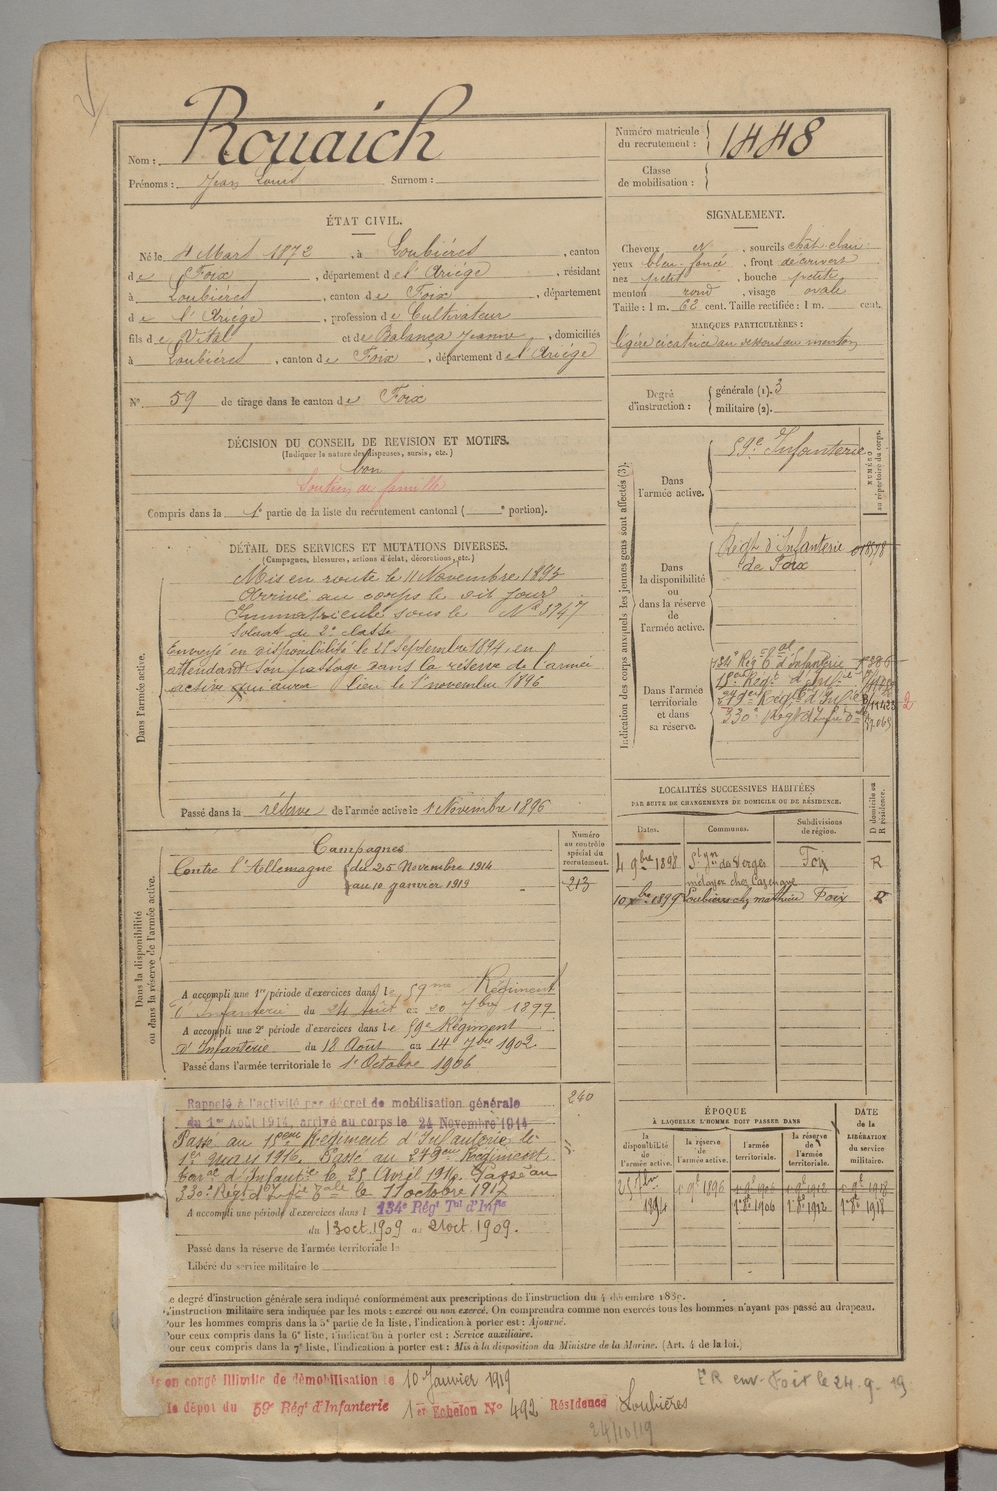 Nom : Rouaich
Prénoms : Jean Louis Surnom :
Numéro matricule du recrutement : 1448
Classe de mobilisation :
ÉTAT CIVIL.
Né le 4 Mars 1872, à Loubières, canton
de Foix, département de l'Ariége, résidant
à Loubières, canton de Foix, département
de l'Ariége, profession de Cultivateur
fils de Vital et de Balança Jeanne, domiciliés
à Loubières, canton de Foix, département de l'Ariége
N° 59 de tirage dans le canton de Foix
SIGNALEMENT.
Cheveux et, sourcils chât. clair
yeux bleu foncé, front découvert
nez petit, bouche petite
menton rond, visage ovale
Taille : 1 m. 62 cent. Taille rectifiée : 1 m. cent.
MARQUES PARTICULIÈRES :
légère cicatrice au dessous du menton
Degré d'instruction : générale (1). 3
militaire (2).
DÉCISION DU CONSEIL DE REVISION ET MOTIFS.
(Indiquer la nature des dispenses, sursis, etc.)
bon
Soutien de famille
Compris dans la 1e partie de la liste du recrutement cantonal ( e portion).
DÉTAIL DES SERVICES ET MUTATIONS DIVERSES.
(Campagnes, blessures, actions d'éclat, décorations, etc.)
Dans l'armée active.
Mis en route le 11 Novembre 1893
Arrivé au corps le dit jour
Immatriculé sous le N° 3247
Soldat de 2e classe
Envoyé en disponibilité le 25 septembre 1894, en
attendant son passage dans la réserve de l'armée
active qui aura lieu le 1er novembre 1896
Passé dans la réserve de l'armée active le 1 Novembre 1896
Indication des corps auxquels les jeunes gens sont affectés (3).
NUMÉRO au répertoire du corps.
Dans l'armée active.
59e Infanterie
Dans la disponibilité ou dans la réserve de l'armée active.
Regt d'Infanterie
de Foix
Dans l'armée territoriale et dans sa réserve.
134e Rég. Tal d'Infanterie
249e
330e Regt d'Infie
LOCALITÉS SUCCESSIVES HABITÉES
PAR SUITE DE CHANGEMENTS DE DOMICILE OU DE RÉSIDENCE.
Dates. Communes. Subdivisions de région. D domicile ou R résidence.
4 9bre 1898 St Jn de Verges Foix R
métayer chez
10 xbre 1899 Loubières chez Foix
Dans la disponibilité ou dans la réserve de l'armée active.
Numéro au contrôle spécial du recrutement.
213
Campagnes
Contre l'Allemagne du 25 Novembre 1914
au 10 janvier 1919
A accompli une 1re période d'exercices dans le 59me Régiment
d'Infanterie du 24 août au 20 7bre 1899
A accompli une 2e période d'exercices dans le 59e Régiment
d'Infanterie du 18 Août au 14 7bre 1902
Passé dans l'armée territoriale le 1er Octobre 1906
240
Rappelé à l'activité par décret de mobilisation générale
du 1er Août 1914, arrivé au corps le 24 Novembre 1914
Passé au 15eme Régiment d'Infanterie le
1er mars 1916. Passé au 249eme Régiment
d'Infante le 25 Avril 1916. Passé au
330e Régt d'Infie le 11 octobre 1917
A accompli une période d'exercices dans l 134e Régt Tal d'Infie
du 13 oct. 1909 au 21 oct. 1909.
Passé dans la réserve de l'armée territoriale le
Libéré du service militaire le
ÉPOQUE
À LAQUELLE L'HOMME DOIT PASSER DANS
DATE DE LA LIBÉRATION du service militaire.
la disponibilité de l'armée active. la réserve de l'armée active. l'armée territoriale. la réserve de l'armée territoriale.
25 7bre 1894 1er 9bre 1896 1er 9bre 1906 1er 9bre 1912 1er 9bre 1918
1er 8bre 1906 1er 8bre 1912 1er 8bre 1918
Le degré d'instruction générale sera indiqué conformément aux prescriptions de l'instruction du 4 décembre 1889.
L'instruction militaire sera indiquée par les mots : exercé ou non exercé. On comprendra comme non exercés tous les hommes n'ayant pas passé au drapeau.
Pour les hommes compris dans la 5e partie de la liste, l'indication à porter est : Ajourné.
Pour ceux compris dans la 6e liste, l'indication à porter est : Service auxiliaire.
Pour ceux compris dans la 7e liste, l'indication à porter est : Mis à la disposition du Ministre de la Marine. (Art. 4 de la loi.)
en congé illimité de démobilisation le 10 Janvier 1919
le dépôt du 59e Régt d'Infanterie 1er Echelon N° 492 Résidence Loubières
ER env. Foix le 24-9-19
24/10/19